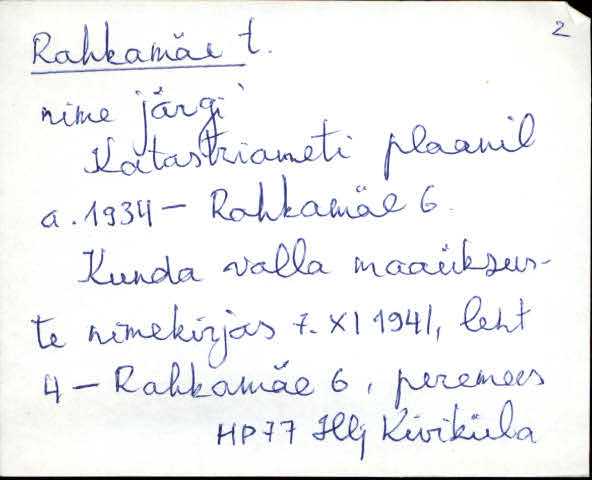 2
Rahkamäe t.
nime järgi
Katastriameti plaanil
a. 1934 – Rahkamäe 6.
Kunda valla maaüksus-
te nimekirjas 7. XI 1941, leht
4 – Rahkamäe 6, peremees
HP77 Hlj Kiviküla